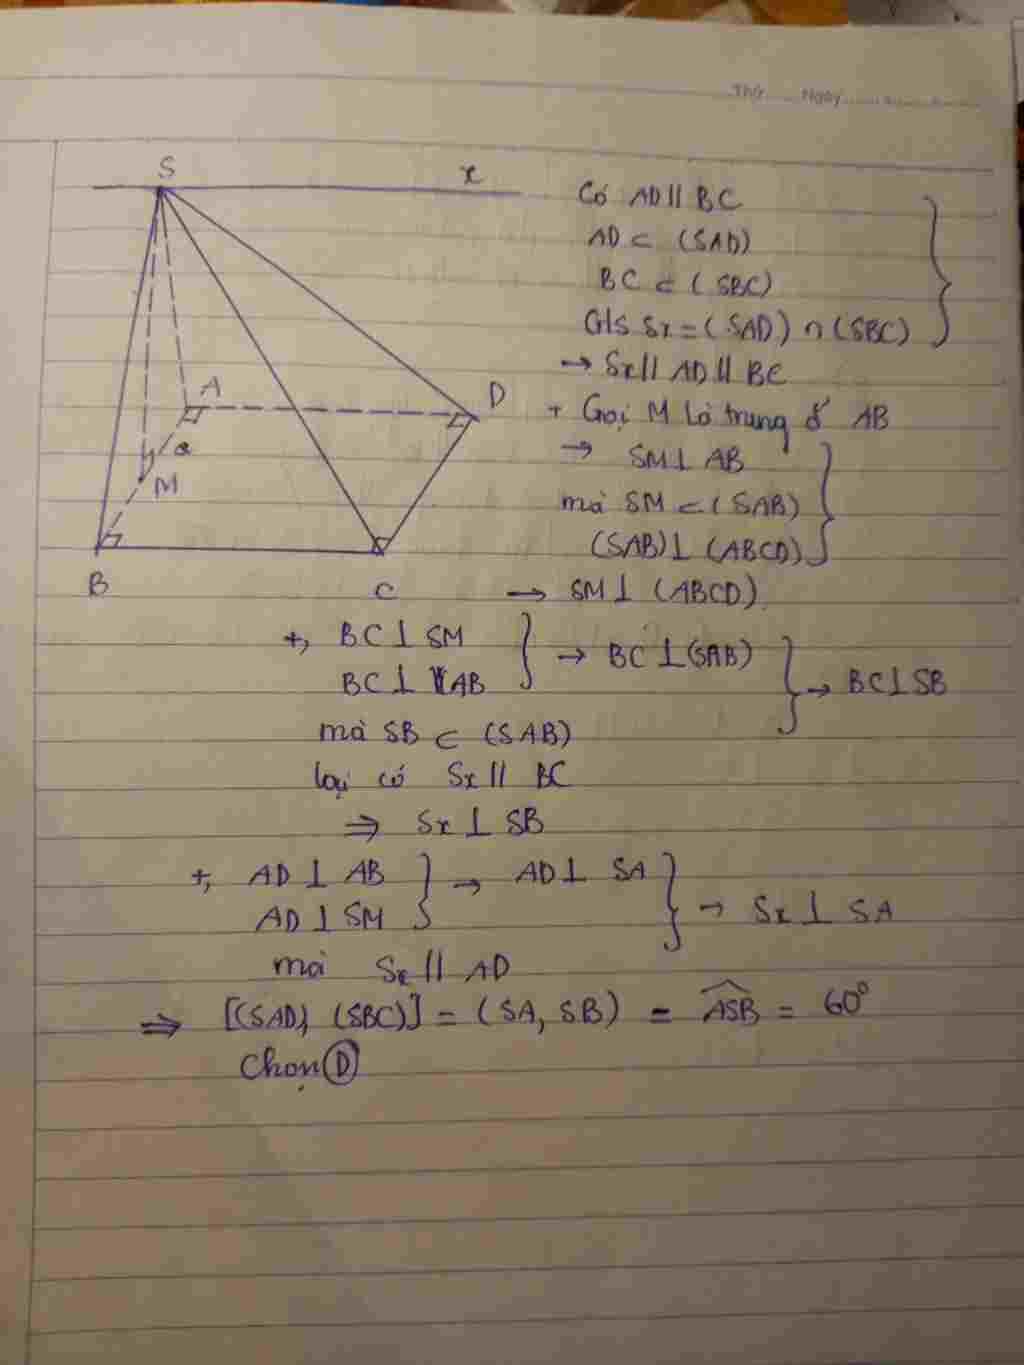 Thứ..... Ngày.....
S
x
A
D
a
M
B
C
Có AD // BC
AD ⊂ (SAD)
BC ⊂ (SBC)
G/s Sx = (SAD) ∩ (SBC)
→ Sx // AD // BC
+ Gọi M là trung đ' AB
→ SM ⊥ AB
mà SM ⊂ (SAB)
(SAB) ⊥ (ABCD)
→ SM ⊥ (ABCD)
+, BC ⊥ SM
BC ⊥ AB
→ BC ⊥ (SAB)
→ BC ⊥ SB
mà SB ⊂ (SAB)
lại có Sx // BC
⇒ Sx ⊥ SB
+, AD ⊥ AB
AD ⊥ SM
→ AD ⊥ SA
→ Sx ⊥ SA
mà Sx // AD
⇒ [(SAD), (SBC)] = (SA, SB) = ASB = 60°
Chọn D